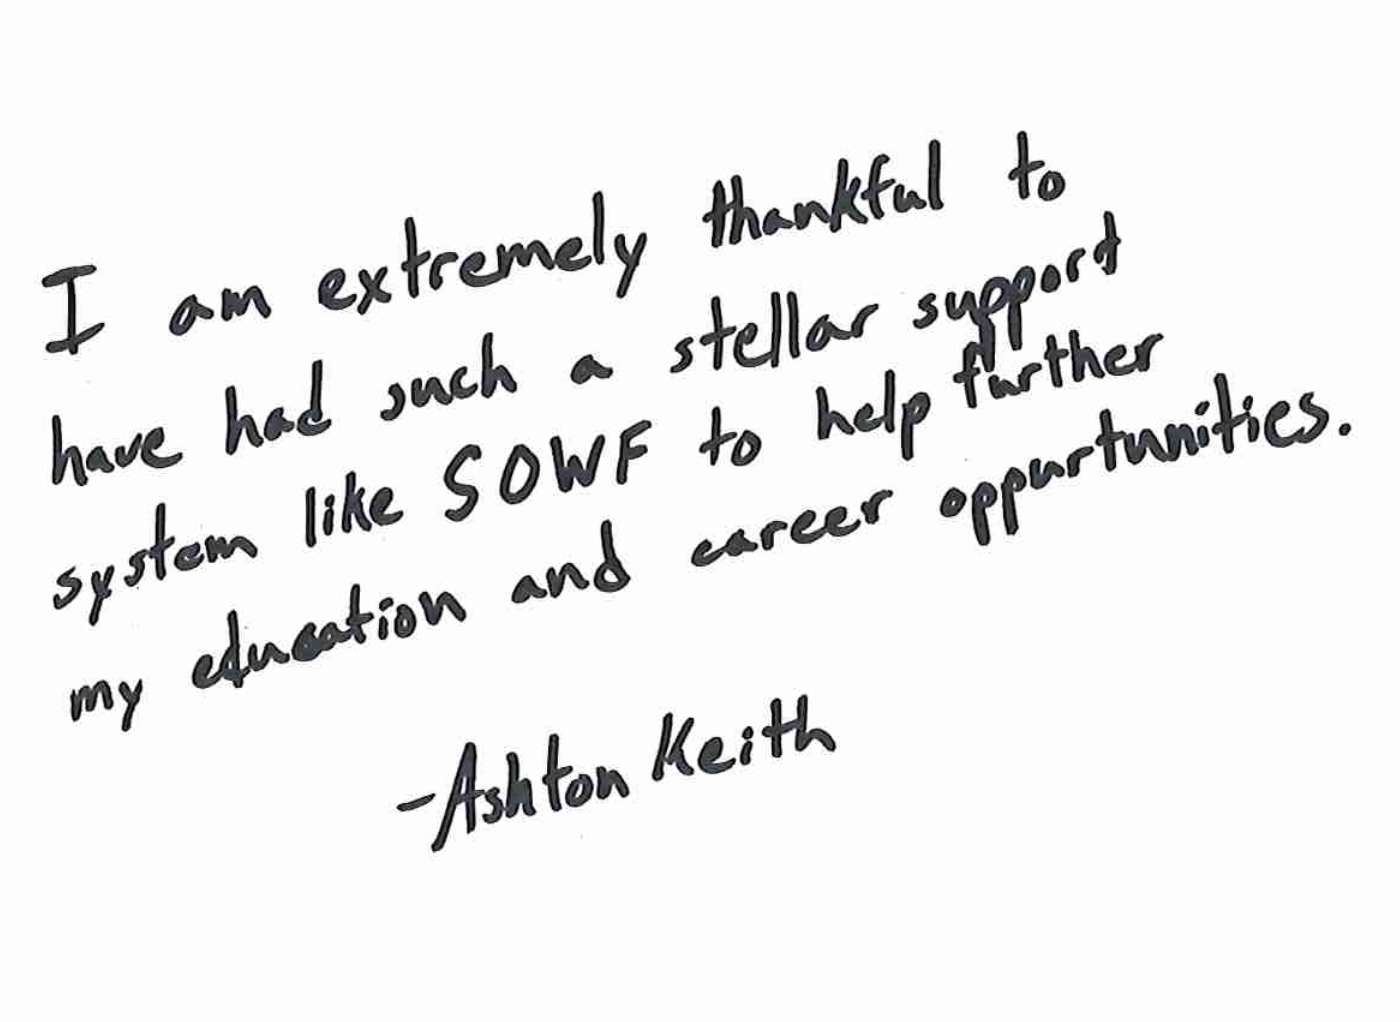 I am extremely thankful to
have had such a stellar support
system like SOWF to help further
my education and career oppurtunities.
-Ashton Keith